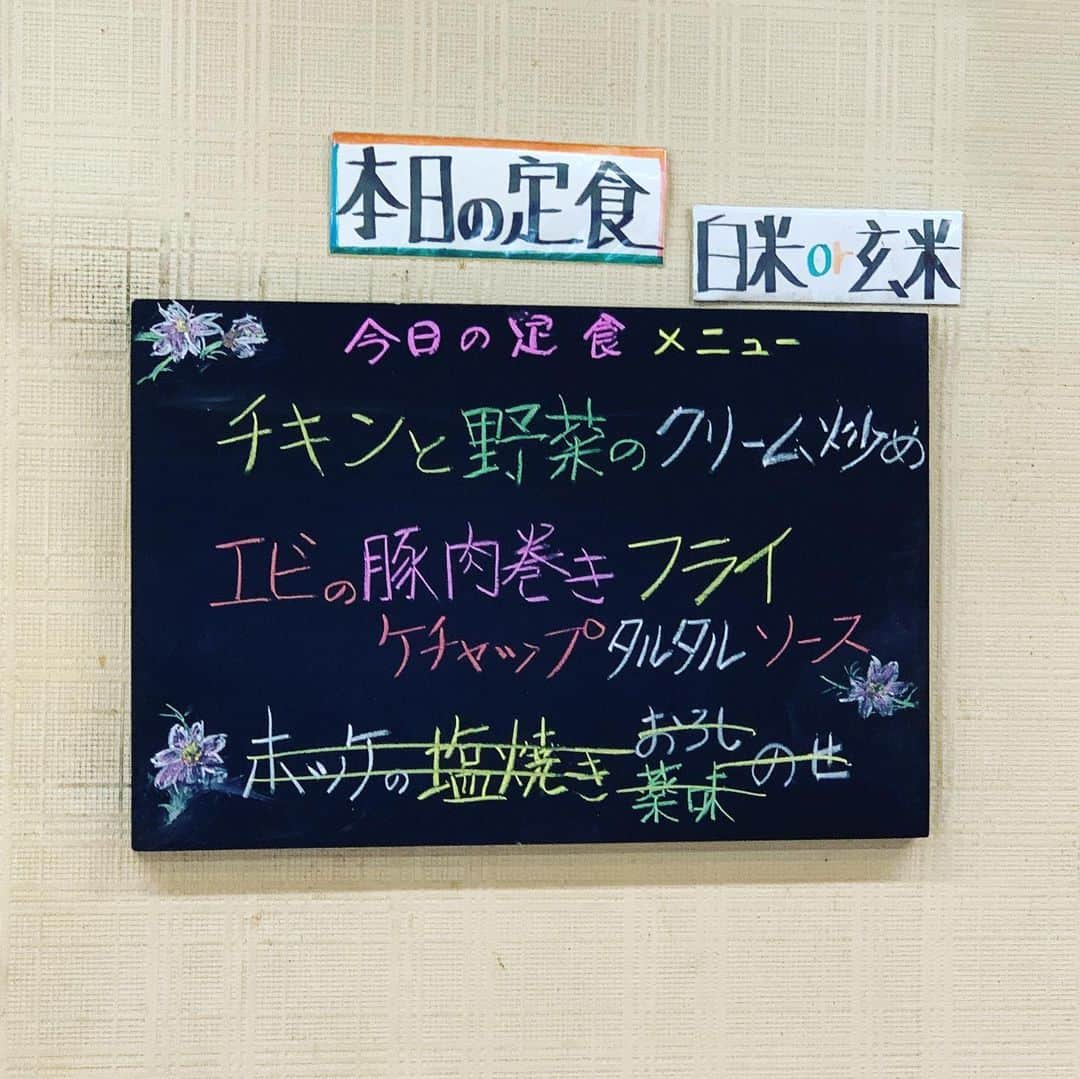 本日の定食
白米or玄米
今日の定食メニュー
チキンと野菜のクリーム炒め
エビの豚肉巻きフライ
ケチャップタルタルソース
ホッケの塩焼きおろし薬味のせ